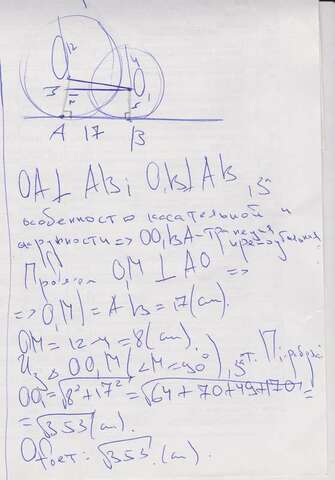 12
O
4
O₁
A 17 B
OA ⊥ AB; O₁B ⊥ AB
особенность касательной и
окружности => OO₁BA - трапеция
прямоугольная
O₁M ⊥ AO =>
=> O₁M = AB = 17 (см).
OM = 12 - 4 = 8 (см).
Из △ OO₁M (∠M = 90°)
OO₁ = √8² + 17² = √64 + 70 + 49 + 170 =
= √353 (см).
Ответ: √353 (см).